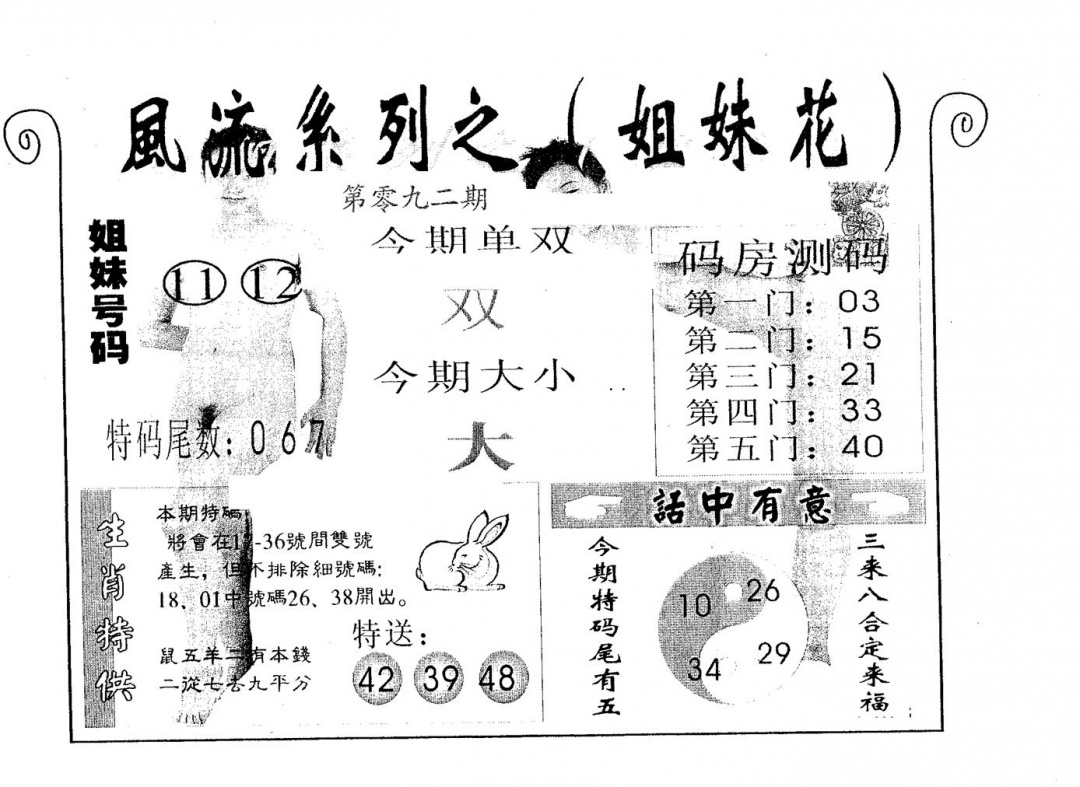 風流系列之（姐妹花）
第零九二期
姐妹号码
11 12
特码尾数：067
今期单双
双
今期大小
大
码房测码
第一门：03
第二门：15
第三门：21
第四门：33
第五门：40
生肖特供
本期特碼
將會在1-36號間雙號
產生，但不排除細號碼：
18、01中號碼26、38開出。
鼠五羊二有本錢
二從七去九平分
特送：
42 39 48
話中有意
今期特码尾有五
10 26
34 29
三来八合定来福